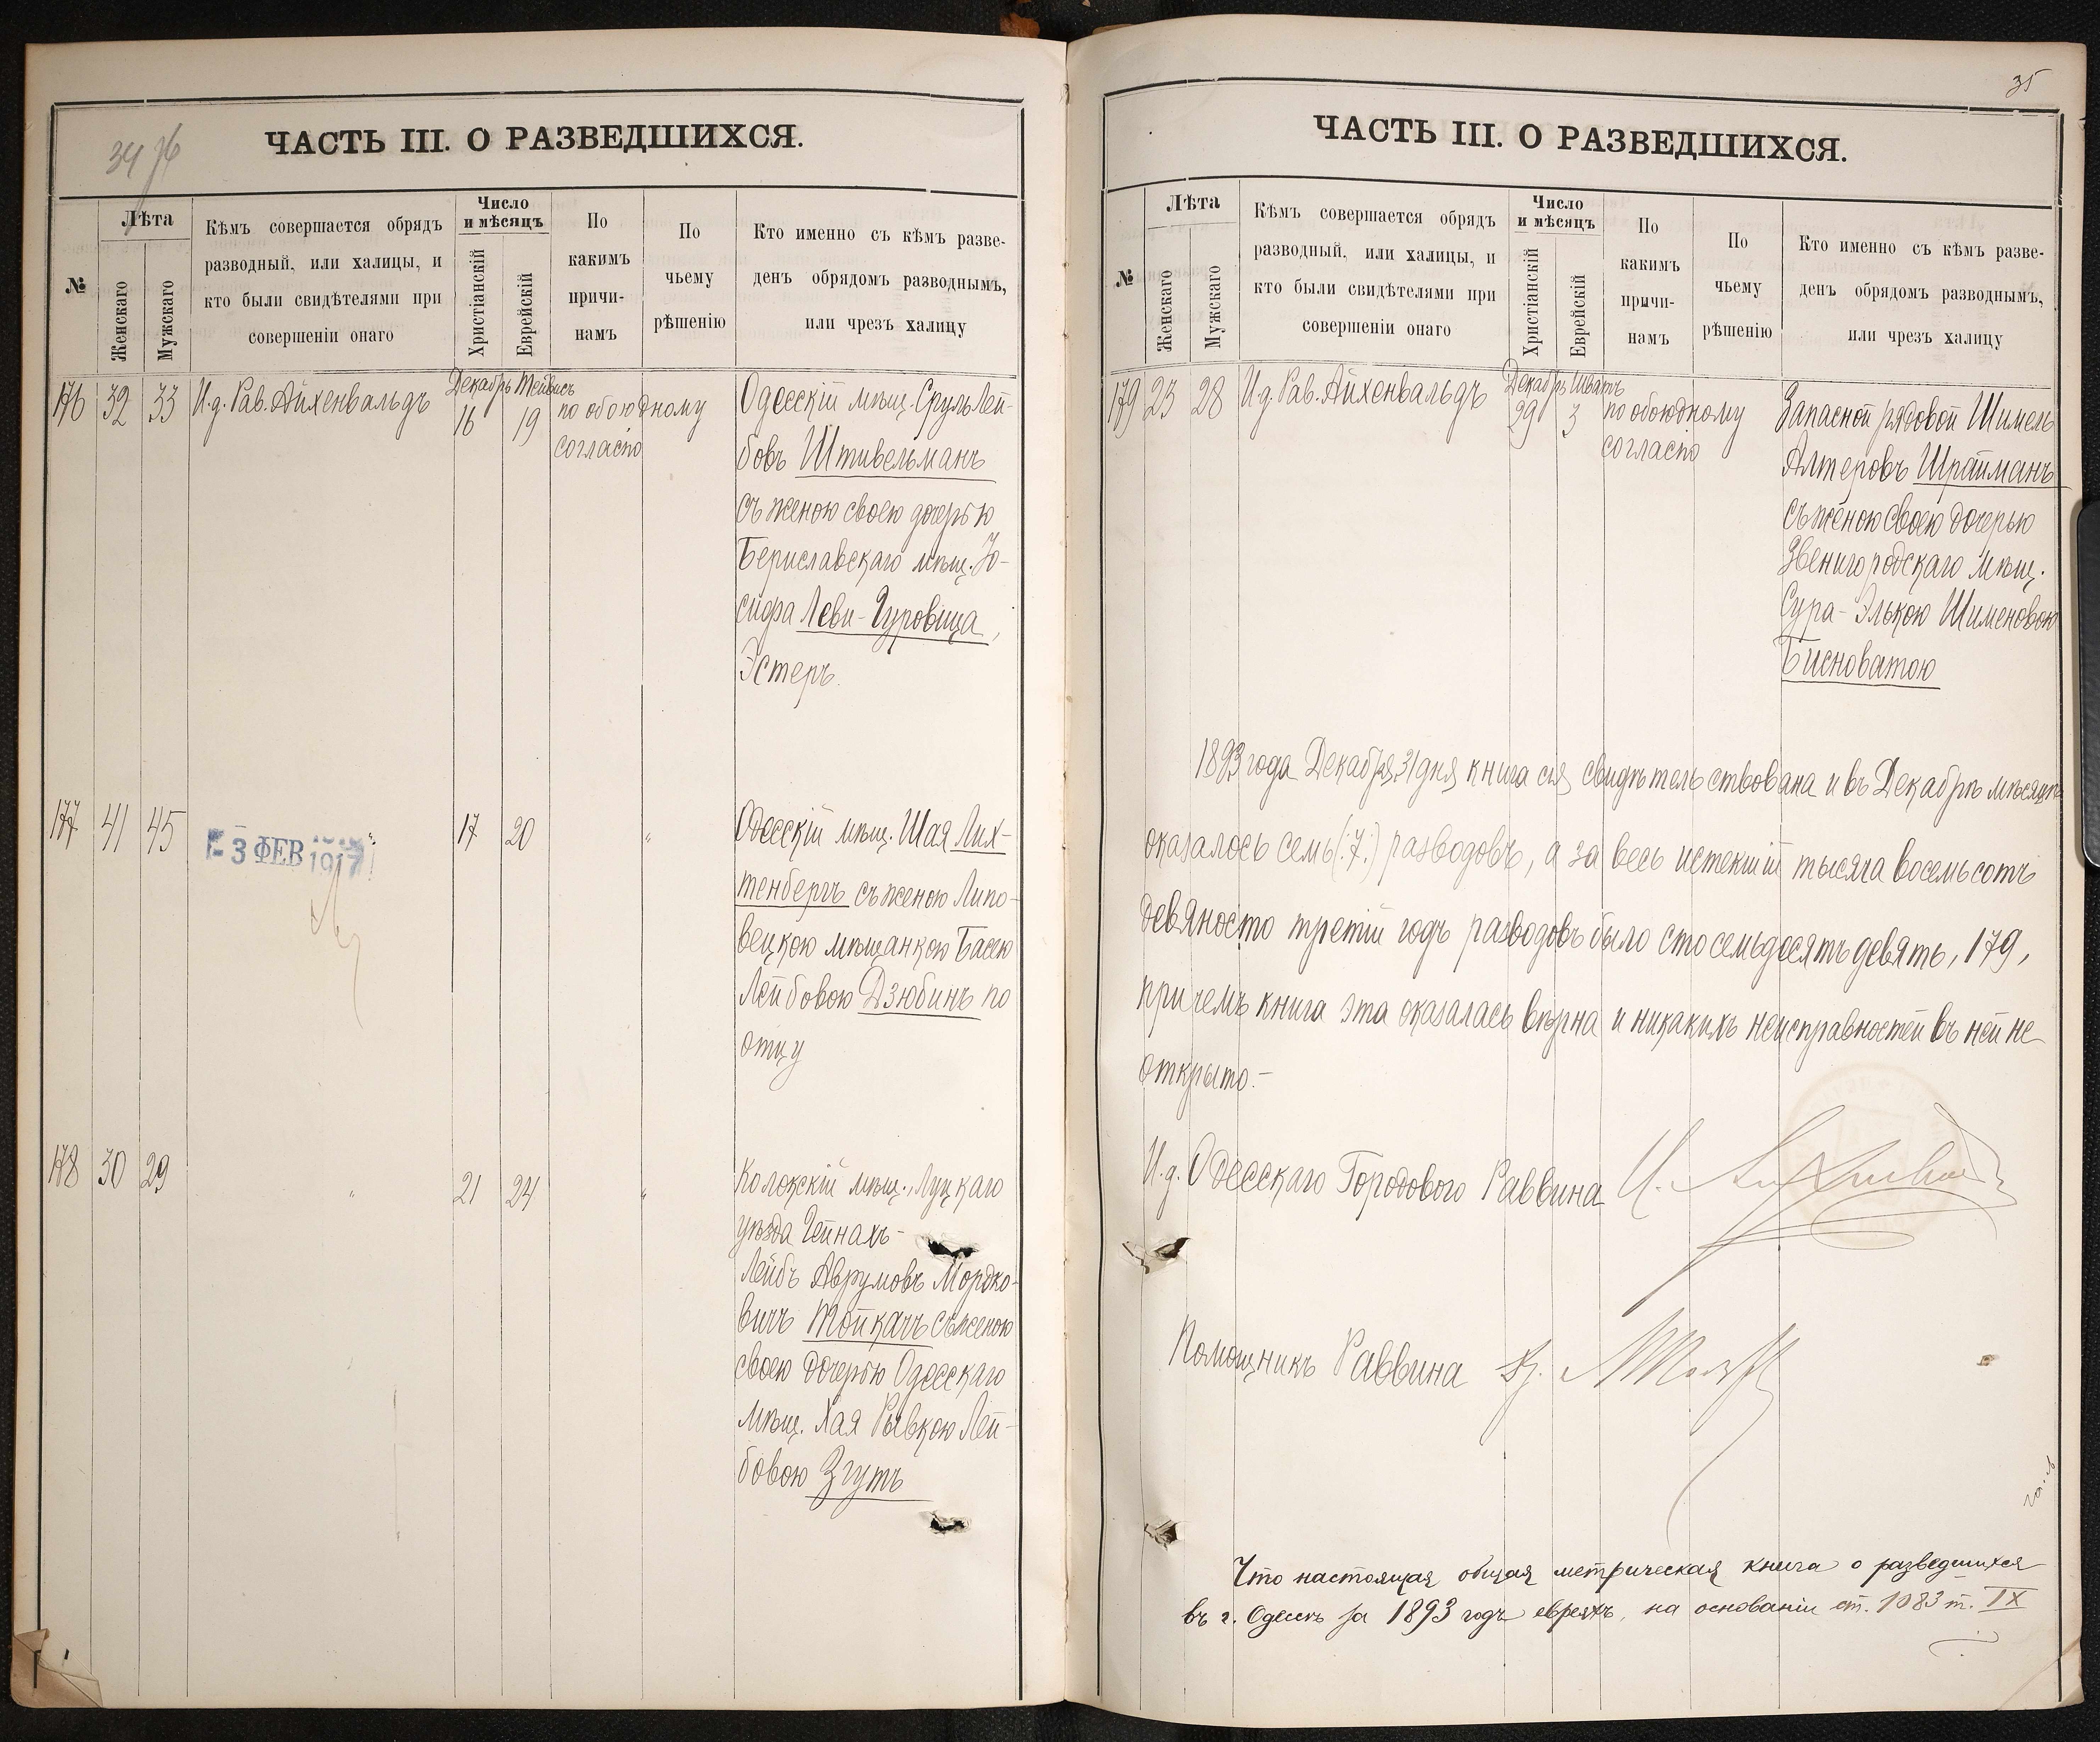 34 76
ЧАСТЬ III. О РАЗВЕДШИХСЯ.
№
Лѣта
Женскаго
Мужскаго
Кѣмъ совершается обрядъ
разводный, или халицы, и
кто были свидѣтелями при
совершеніи онаго
Число
и мѣсяцъ
Христіанскій
Еврейскій
По
какимъ
причи-
намъ
По
чьему
рѣшенію
Кто именно съ кѣмъ разве-
денъ обрядомъ разводнымъ,
или чрезъ халицу
176 32 33 И.д. Рав. Айхенвальдъ Декабрь Тейвисъ 16 19 по обоюдному
согласію
Одесскій мѣщ. Сруль Лей-
бовъ Штивельманъ
съ женою своею дочерью
Бериславскаго мѣщ. Іо-
сифа Леви-Гуровица,
Эстеръ.
177 41 45 " 17 20 "
- 3 ФЕВ 1917
Одесскій мѣщ. Шая Лих-
тенбергъ съ женою Липо-
вецкою мѣщанкою Басею
Лейбовою Дзюбинъ по
отцу
178 30 29 " 21 24 "
Колокскій мѣщ., Луцкаго
уѣзда Гейнахъ-
Лейбъ Аврумовъ Мордко-
вичъ Тойкачъ съ женою
своею дочерью Одесскаго
мѣщ. Хая Рывкою Лей-
бовою Згутъ
35
ЧАСТЬ III. О РАЗВЕДШИХСЯ.
№
Лѣта
Женскаго
Мужскаго
Кѣмъ совершается обрядъ
разводный, или халицы, и
кто были свидѣтелями при
совершеніи онаго
Число
и мѣсяцъ
Христіанскій
Еврейскій
По
какимъ
причи-
намъ
По
чьему
рѣшенію
Кто именно съ кѣмъ разве-
денъ обрядомъ разводнымъ,
или чрезъ халицу
179 23 28 И.д. Рав. Айхенвальдъ Декабрь Шватъ 29 3 по обоюдному
согласію
Запасной рядовой Шимель
Алтеровъ Шрайманъ
съ женою своею дочерью
Звенигородскаго мѣщ.
Сура-Элькою Шименовою
Бисноватою
1893 года Декабря 31 дня книга сія свидѣтельствована и въ Декабрѣ мѣсяцѣ
оказалось семь (:7:) разводовъ, а за весь истекшій тысяча восемьсотъ
девяносто третій годъ разводовъ было сто семьдесятъ девять, 179,
причемъ книга эта оказалась вѣрна и никакихъ неисправностей въ ней не
открыто.-
И.д. Одесскаго Городового Раввина
Помощникъ Раввина
Что настоящая общая метрическая книга о разведшихся
въ г. Одессѣ за 1893 годъ евреяхъ, на основаніи ст. 1083 т. IX